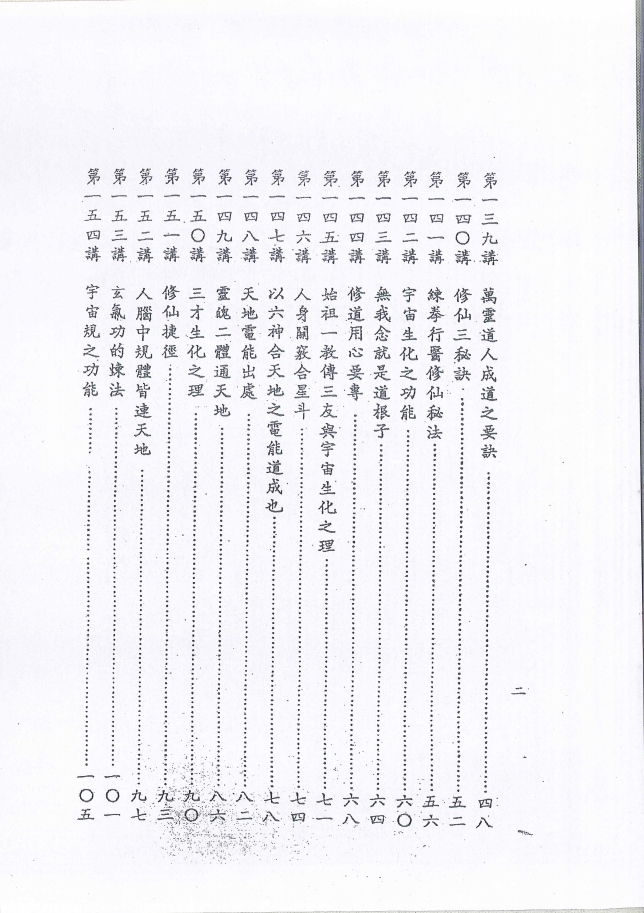 二
第一三九講 萬靈道人成道之要訣……四八
第一四〇講 修仙三秘訣……五二
第一四一講 練拳行醫修仙秘法……五六
第一四二講 宇宙生化之功能……六〇
第一四三講 無我念就是道根子……六四
第一四四講 修道用心要專……六八
第一四五講 始祖一教傳三友與宇宙生化之理……七一
第一四六講 人身關竅合星斗……七四
第一四七講 以六神合天地之電能道成也……七八
第一四八講 天地電能出處……八二
第一四九講 靈魄二體通天地……八六
第一五〇講 三才生化之理……九〇
第一五一講 修仙捷徑……九三
第一五二講 人腦中規體皆連天地……九七
第一五三講 玄氣功的煉法……一〇一
第一五四講 宇宙規之功能……一〇五